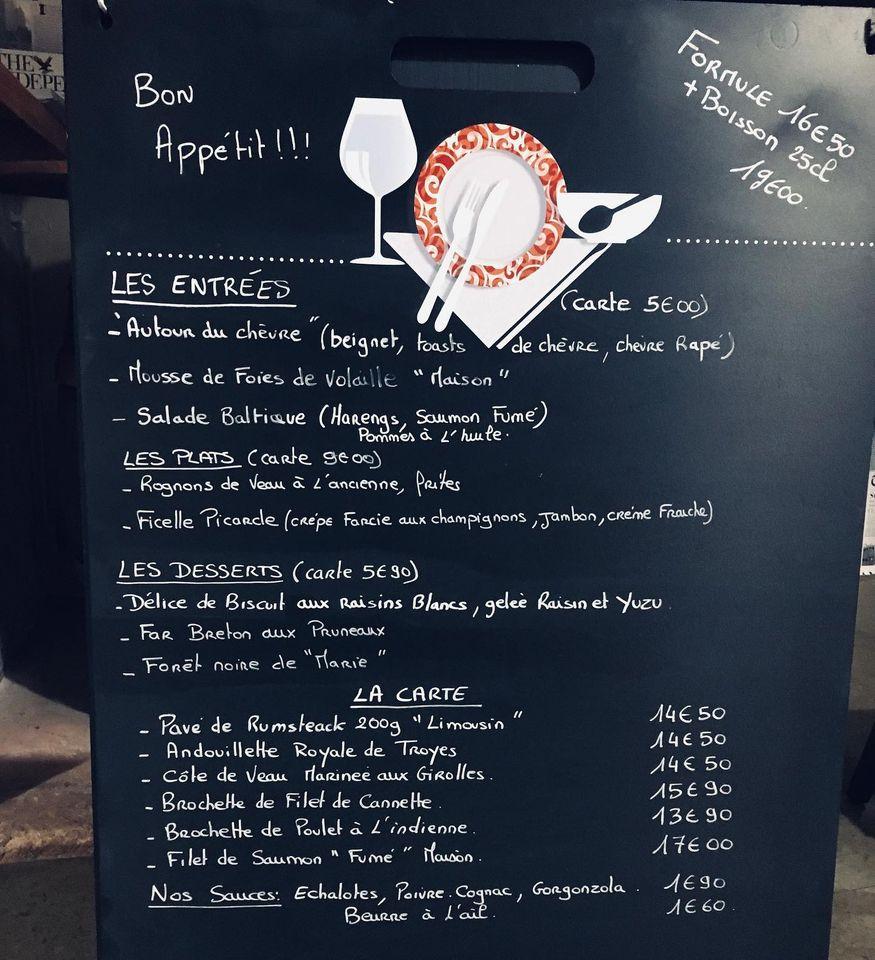 THE
DEPE
BON
Appétit!!!
FORMULE 16€50
+ Boisson 25cl
19€00.
LES ENTRÉES
(carte 5€00)
- "Autour du chèvre" (beignet, toasts de chèvre, chèvre Rapé)
- Mousse de Foies de Volaille "Maison"
- Salade Baltique (Harengs, Saumon Fumé)
Pommes à L'huile.
LES PLATS (carte 9€00)
- Rognons de Veau à L'ancienne, frites
- Ficelle Picarde (crépe Farcie aux champignons, jambon, créme Fraiche)
LES DESSERTS (carte 5€90)
- Délice de Biscuit aux Raisins Blancs, geleè Raisin et Yuzu.
- Far Breton aux Pruneaux
- Forêt noire de "Marie"
LA CARTE
- Pavé de Rumsteack 200g "Limousin" 14€50
- Andouillette Royale de Troyes 14€50
- Côte de Veau Marineè aux Girolles. 14€50
- Brochette de Filet de Cannette. 15€90
- Brochette de Poulet à L'indienne. 13€90
- Filet de Saumon "Fumé" Maison. 17€00
Nos Sauces: Echalotes, Poivre. Cognac, Gorgonzola. 1€90
Beurre à L'ail. 1€60.